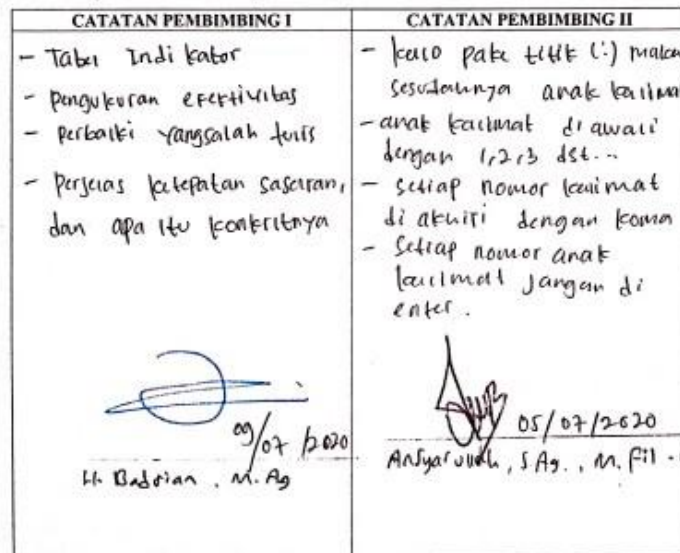 CATATAN PEMBIMBING I
- Tabel Indikator
- Pengukuran efektivitas
- Perbaiki yang salah tulis
- Perjelas ketepatan sasaran,
dan apa itu konkritnya
09/07/2020
H. Badrian, M.Ag
CATATAN PEMBIMBING II
- kalo pake titik (:) maka
sesudahnya anak kalimat
- anak kalimat di awali
dengan 1,2,3 dst...
- setiap nomor kalimat
di akhiri dengan koma
- Setiap nomor anak
kalimat jangan di
enter.
05/07/2020
Ansyarullah, S.Ag., M.Fil